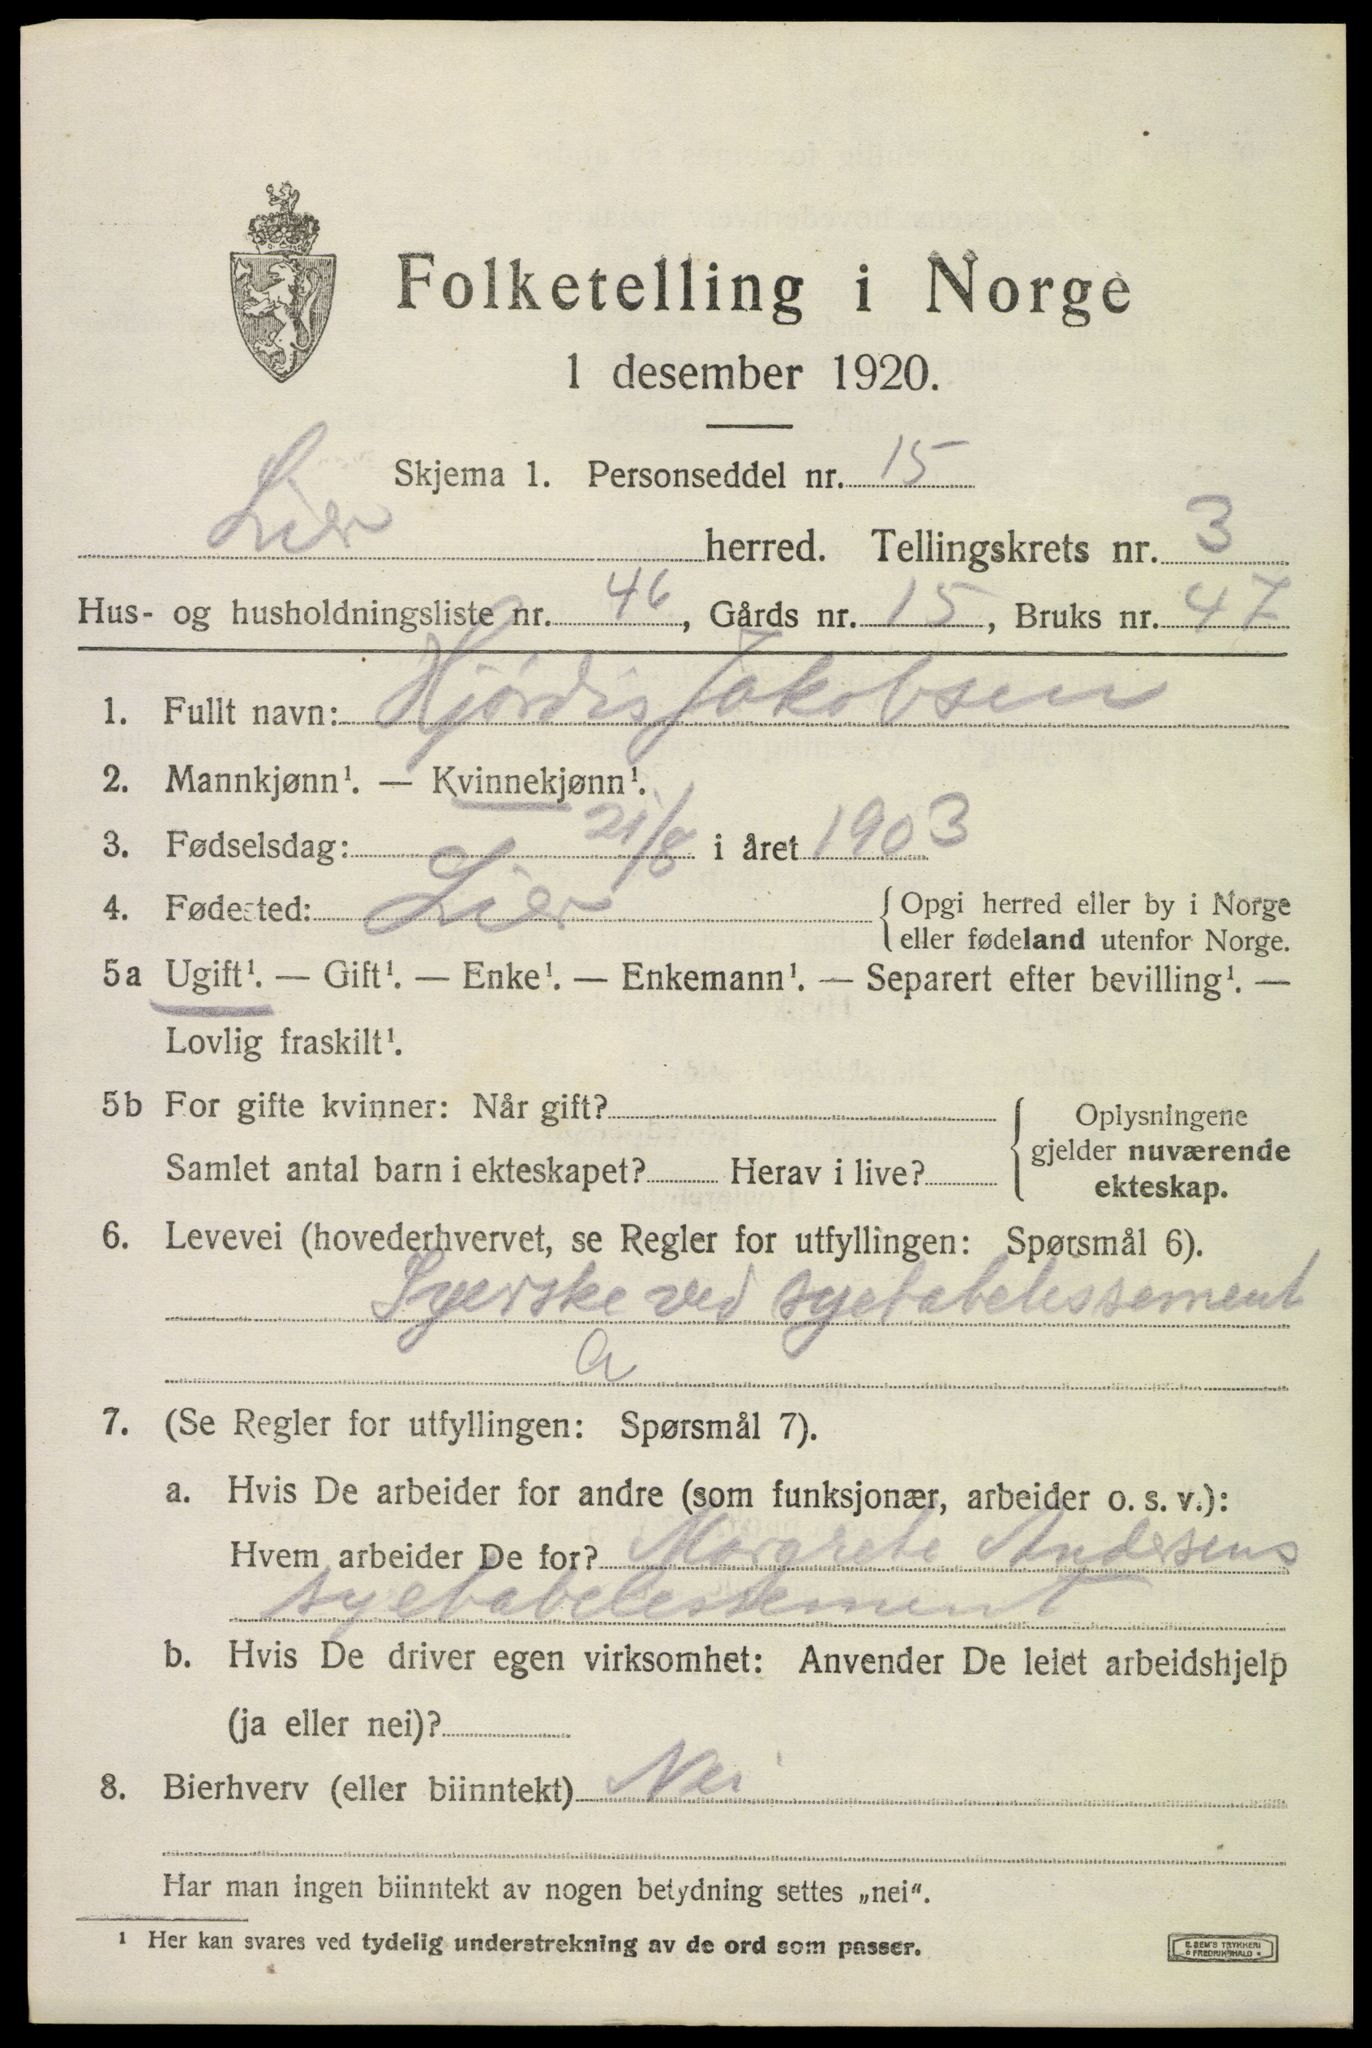 Folketelling i Norge
1 desember 1920.
Skjema 1. Personseddel nr. 15
Lier herred. Tellingskrets nr. 3
Hus- og husholdningsliste nr. 46, Gårds nr. 15, Bruks nr. 47
1. Fullt navn: Hjørdis Jakobsen
2. Mannkjønn¹. — Kvinnekjønn¹.
3. Fødselsdag: 21/8 i året 1903
4. Fødested: Lier { Opgi herred eller by i Norge
eller fødeland utenfor Norge.
5a Ugift¹. — Gift¹. — Enke¹. — Enkemann¹. — Separert efter bevilling¹. —
Lovlig fraskilt¹.
5b For gifte kvinner: Når gift? { Oplysningene
gjelder nuværende
Samlet antal barn i ekteskapet? Herav i live?
ekteskap.
6. Levevei (hovederhvervet, se Regler for utfyllingen: Spørsmål 6).
Syerske ved syetabelessement
a
7. (Se Regler for utfyllingen: Spørsmål 7).
a. Hvis De arbeider for andre (som funksjonær, arbeider o. s. v.):
Hvem arbeider De for? Margrete Andersens
syetabelessement
b. Hvis De driver egen virksomhet: Anvender De leiet arbeidshjelp
(ja eller nei)?
8. Bierhverv (eller biinntekt) Nei
Har man ingen biinntekt av nogen betydning settes „nei“.
¹ Her kan svares ved tydelig understrekning av de ord som passer.
E. SEM'S TRYKKERI
FREDRIKSHALD